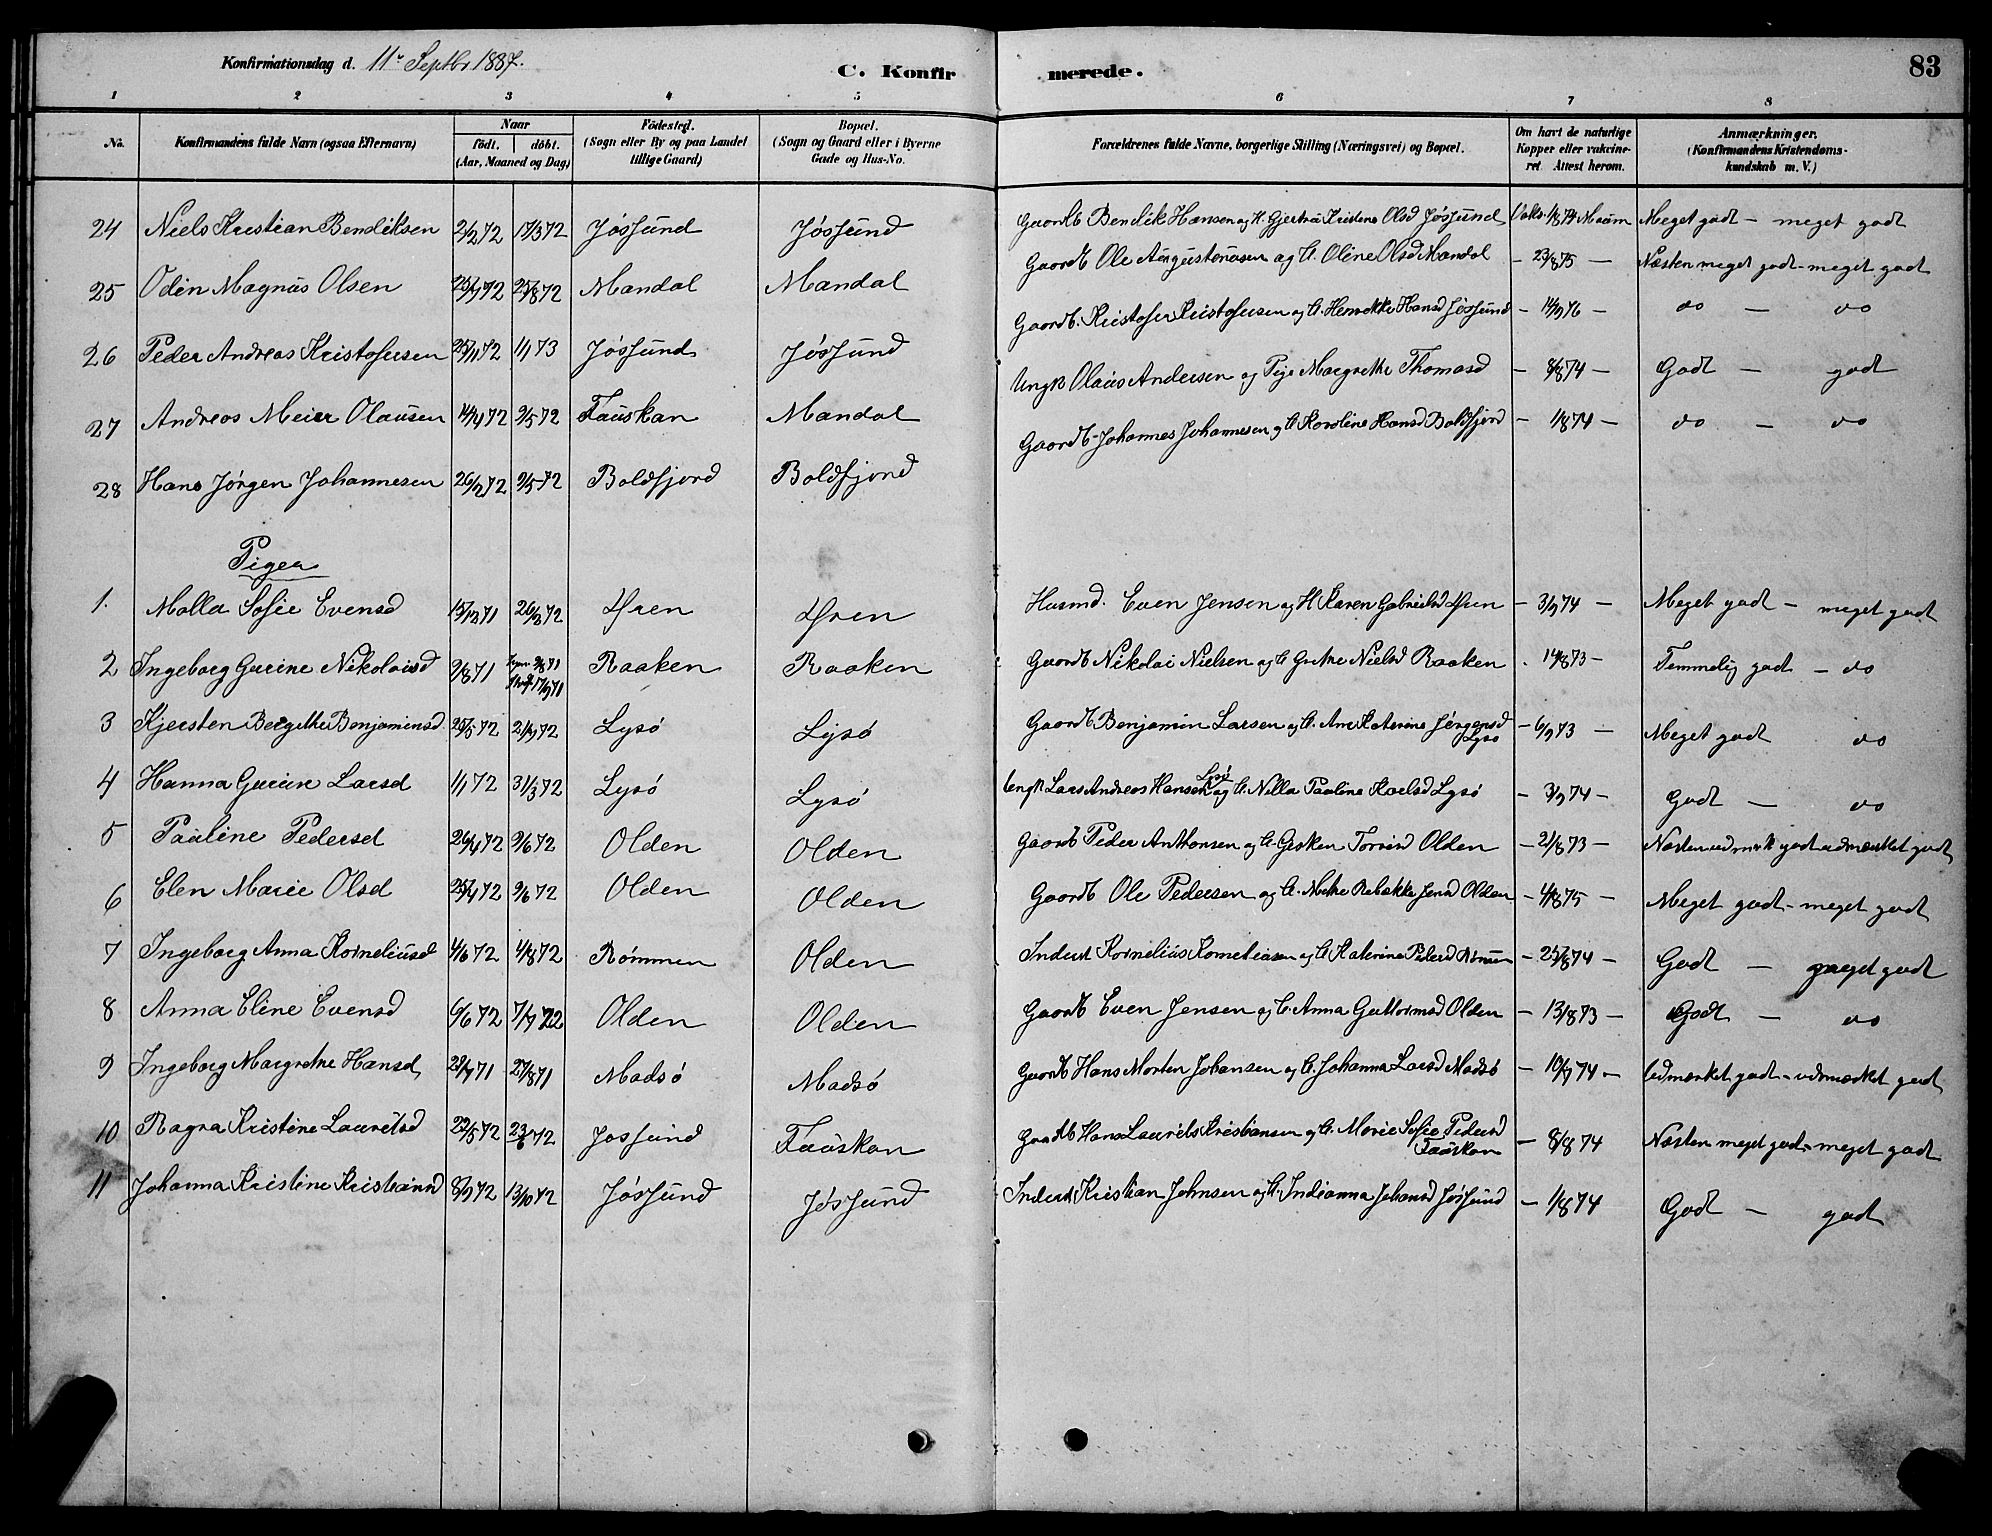 Konfirmationsdag d. 11te Septbr 1887.
C. Konfirmerede.
83
1 2 3 4 5 6 7 8
No.
Konfirmandens fulde Navn (ogsaa Efternavn)
Naar
født. døbt.
(Aar, Maaned og Dag)
Fødested.
(Sogn eller By og paa Landet
tillige Gaard)
Bopæl.
(Sogn og Gaard eller i Byerne
Gade og Hus-No.
Forældrenes fulde Navne, borgerlige Stilling (Næringsvei) og Bopæl.
Om havt de naturlige
Kopper eller vakcine-
ret. Attest herom.
Anmærkninger.
(Konfirmandens Kristendoms-
kundskab m. V.)
24 Niels Kristian Bendiksen 2/2 72 17/3 72 Jøssund Jøssund Gaardb. Bendik Hansen og H. Gjertru Kristine Olsd Jøssund Vaks. 1/8 74 Meget godt - meget godt
25 Odin Magnus Olsen 25/8 72 Mandal Mandal Gaardb Ole Augustinusen og H. Oline Olsd Mandal - 23/8 75 - Næsten meget godt - meget godt
26 Peder Andreas Kristofersen 25/11 72 1/1 73 Jøssund Jøssund Gaardb. Kristofer Kristofersen og H. Hansd Jøssund - 76 - do - do
27 Andreas Meier Olausen 14/4 72 9/5 72 Fauskan Mandal Ungk Olaus Andersen og Pige Margrethe Thomasd - 8/8 74 - Godt - godt
28 Hans Jørgen Johannesen 26/2 72 9/5 72 Boldfjord Boldfjord Gaardb. Johannes Johannesen og H. Karoline Hansd Boldfjord - 1/8 74 - do - do
Piger
1. Malla Sofie Evensd 15/12 71 26/2 72 Husmd. Even Jensen og H. Karen Gabrielsd - 3/9 74 - Meget godt - meget godt
2 Ingeborg Gurine Nikolaisd 9/8 71 9/8 71 17/9 71 Raaken Raaken Gaardb Nikolai Nielsen og H. Grethe Nielsd Raaken 14/8 73 - Temmelig godt - do
3 Kjersten Bergithe Benjaminsd 25/5 72 21/7 72 Lysø Lysø Gaardb. Benjamin Larsen og H. Ane Katerine Jørgensd Lysø - 6/9 73 - Meget godt do
4 Hanna Gurine Larsd 1/1 72 31/3 72 Lysø Lysø Ungk Lars Andreas Hansen Lysø og H. Nilla Pauline Karlsd Lysø - 3/9 74 - Godt - do
5 Pauline Pedersd 26/4 72 9/6 72 Olden Olden Gaardb Peder Anthonsen og H. Olden - 21/8 73 - Næsten udmærk godt udmærket godt
6 Elen Marie Olsd 25/4 72 9/6 72 Olden Olden Gaardb Ole Pedersen og H. Mette Rebække Jensd Olden - 4/8 75 - Meget godt - meget godt
7 Ingeborg Anna Korneliusd 4/6 72 4/8 72 Rømmen Olden Inderst Kornelius Korneliusen og H. Katerina Pedersd Rømmen - 25/8 74 - Godt - meget godt
8 Anna Eline Evensd 6/6 72 7/7 72 Olden Olden Gaardb Even Jensen og H. Anna Guttormsd Olden - 13/8 73 - Godt - do
9 Ingeborg Margrethe Hansd 27/8 71 Madsø Madsø Gaardb Hans Morten Johansen og H. Johanna Larsd Madsø - 10/9 74 - Udmærket godt - udmærket godt
10 Ragna Kristine Lauritsd 22/5 72 23/6 72 Jossund Fauskan Gaardb Hans Laurits Kristiansen og H. Marie Sofie Pedersd Fauskan - 8/8 74 Næsten meget godt - meget godt
11 Johanna Kristine Kristiansd 8/9 72 13/10 72 Jøssund Jøssund Inderst Kristian Johnsen og H. Indianna Johansd Jøssund - 1/8 74 Godt - godt